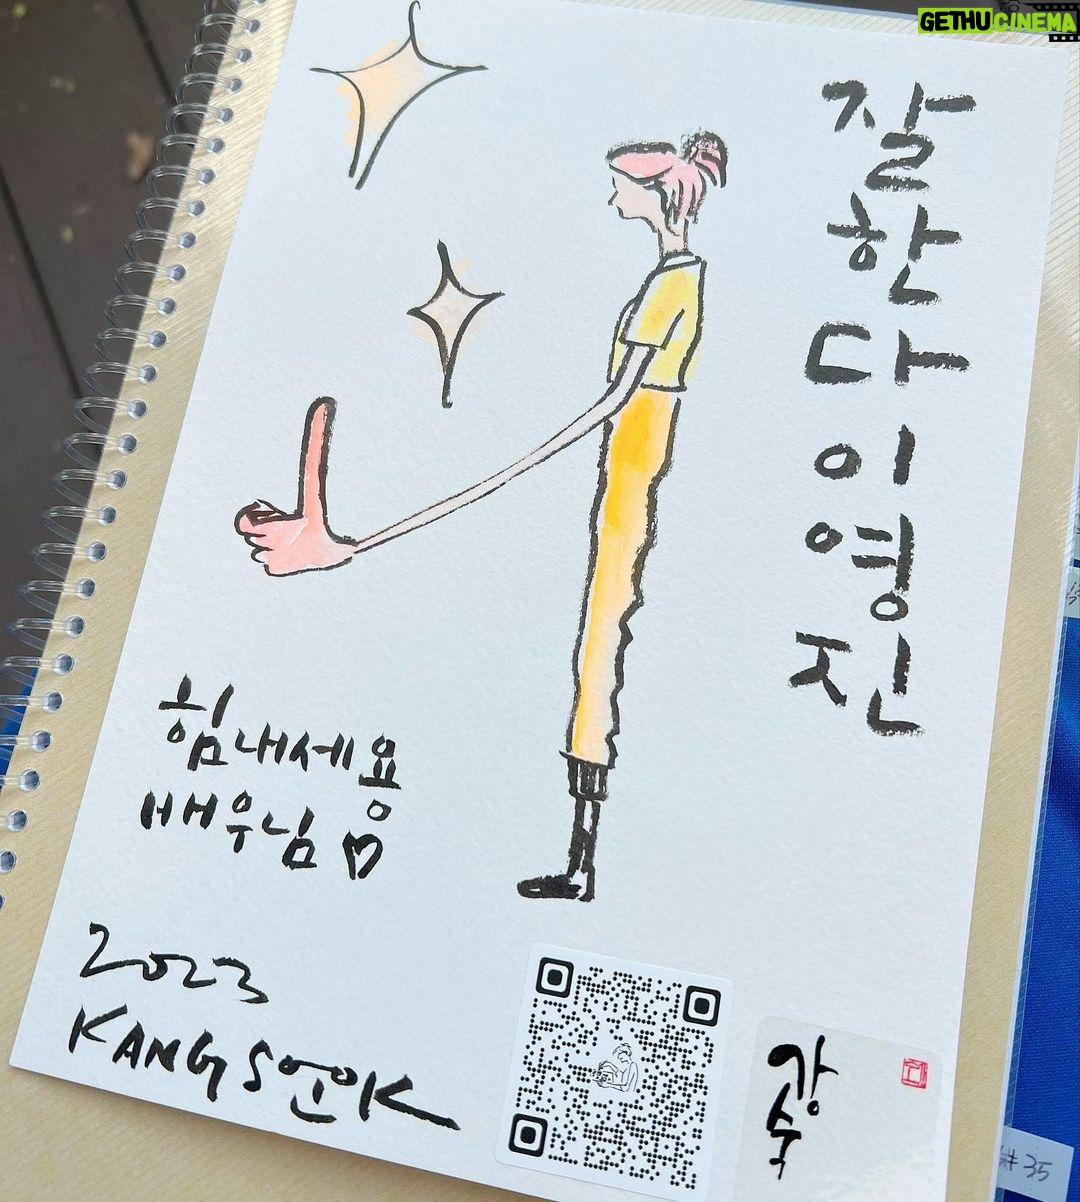 GETHUCINEMA
잘한다이영진
힘내세용
배우님 ♡
2023
KANG
강숙
#35